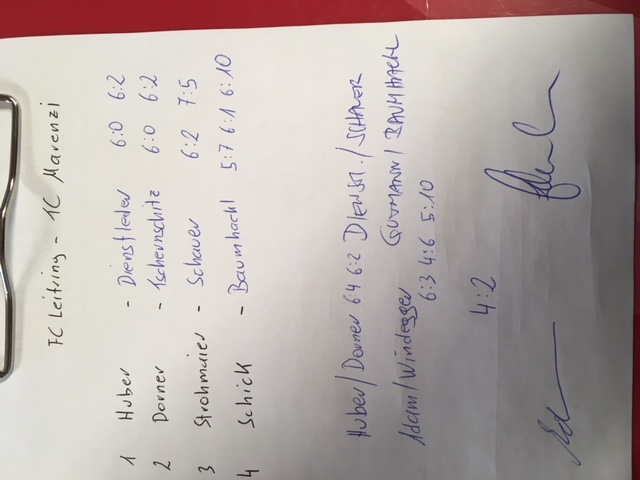 FC Leitring - TC Marenzi
1 Huber - Dienstleder 6:0 6:2
2 Dorner - Tschernschitz 6:0 6:2
3 Strohmaier - Schauer 6:2 7:5
4 Schick - Baumhackl 5:7 6:1 6:10
Huber/Dorner 6:4 6:2 DIENSTL./SCHAUER
Adam/Windegger GUTMANN/BAUMHACKL
6:3 4:6 5:10
4:2